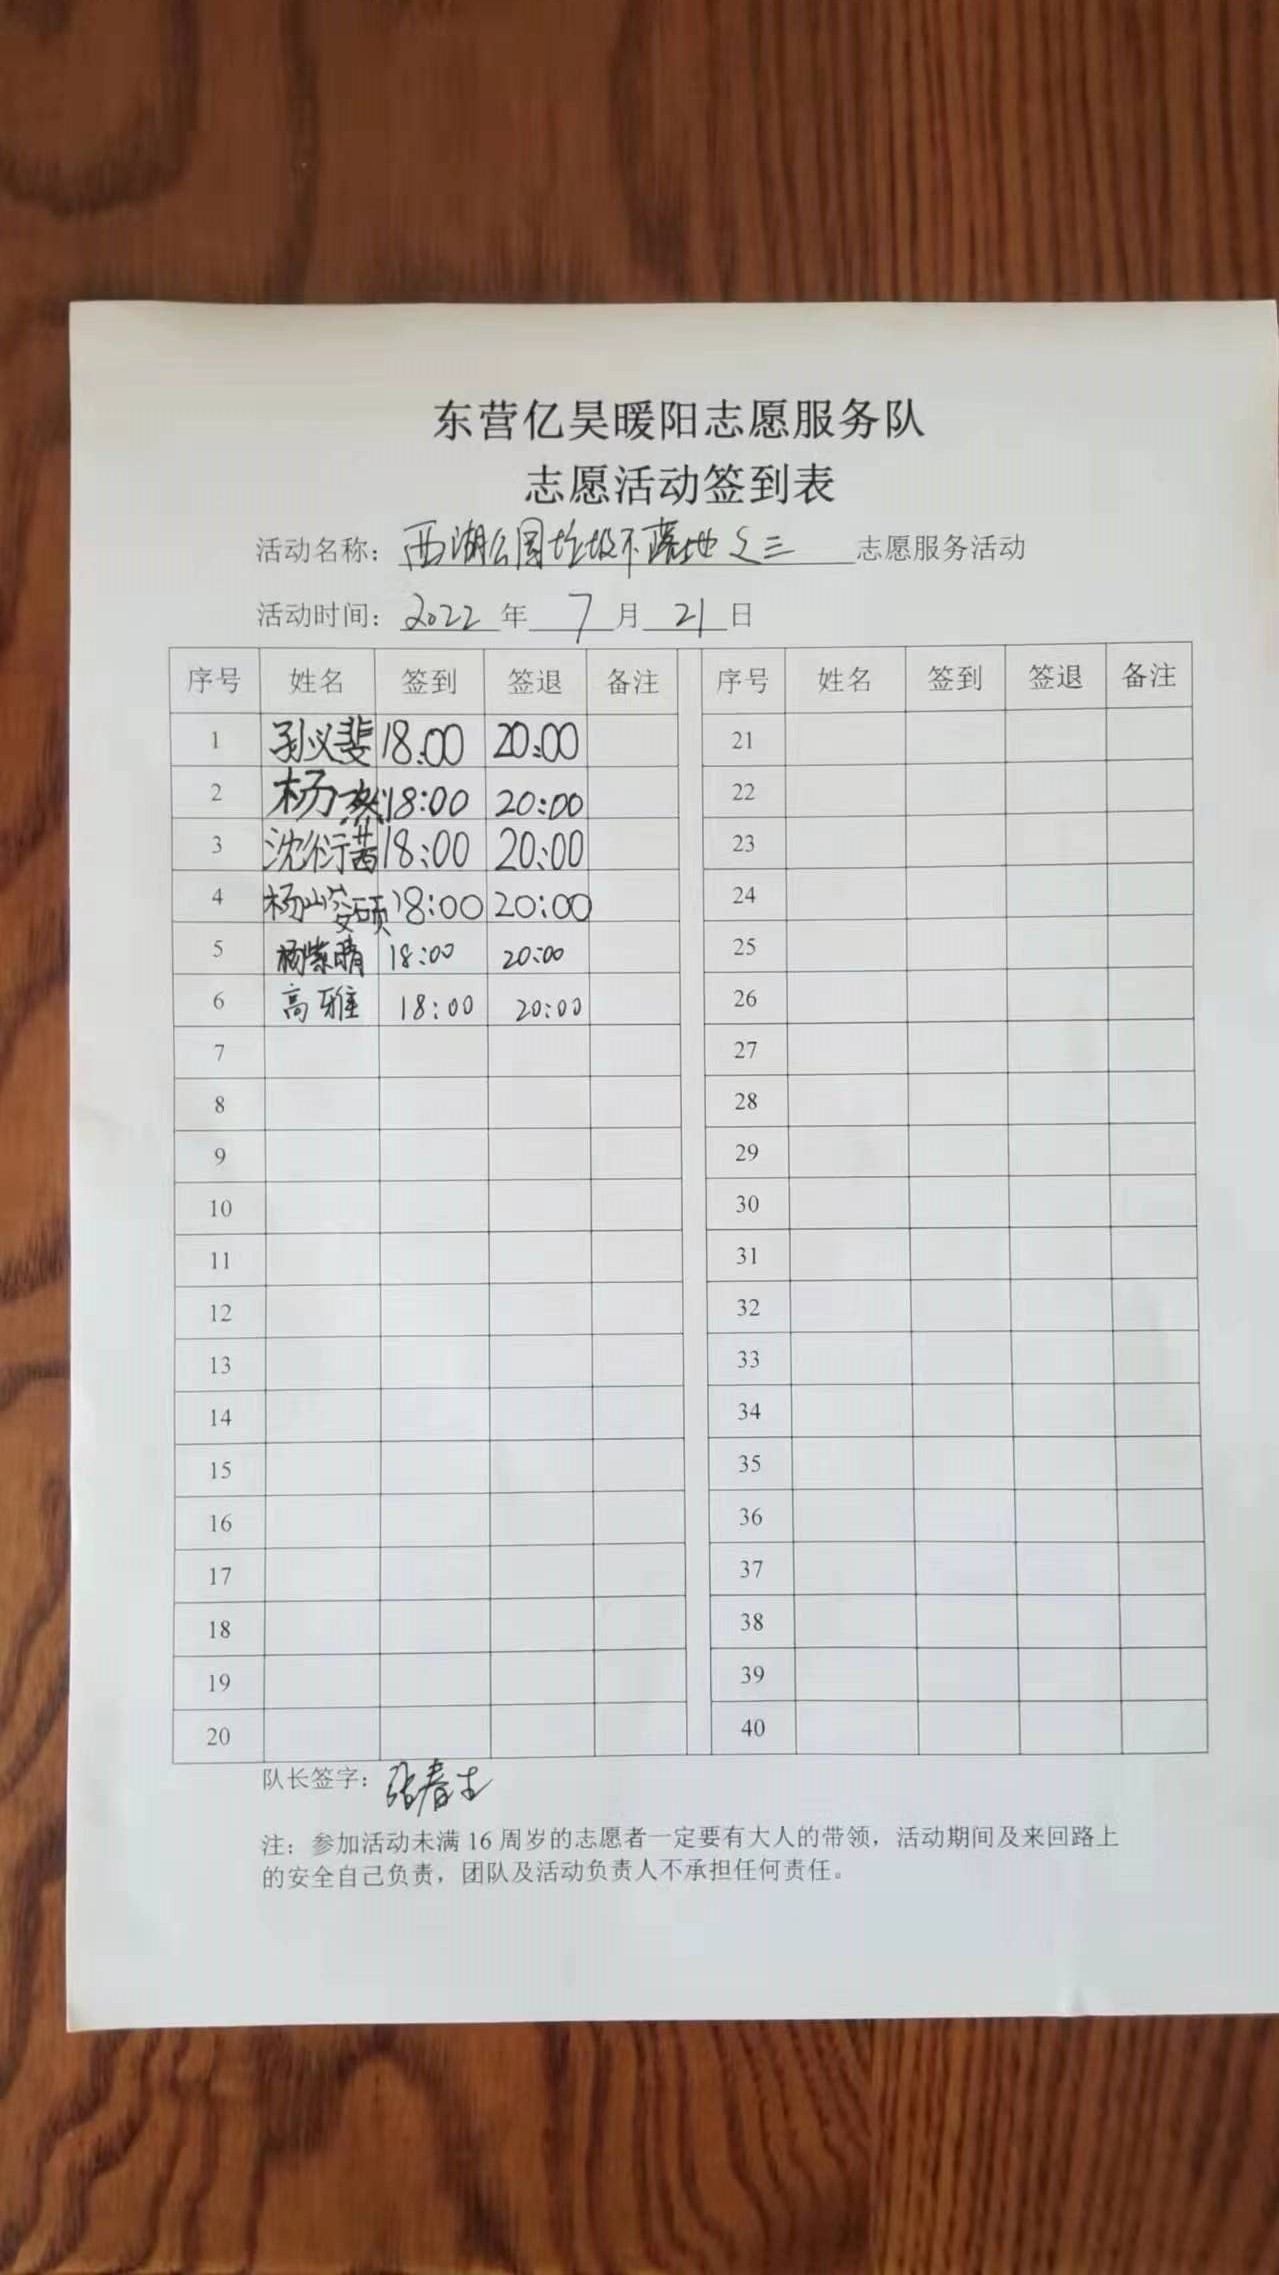 东营亿昊暖阳志愿服务队
志愿活动签到表
活动名称：西湖公园垃圾不落地之三 志愿服务活动
活动时间：2022年 7月 21日
序号 姓名 签到 签退 备注 序号 姓名 签到 签退 备注
1 孙义斐 18:00 20:00 21
2 杨 18:00 20:00 22
3 沈衍茜 18:00 20:00 23
4 杨 18:00 20:00 24
5 杨紫晴 18:00 20:00 25
6 高雅 18:00 20:00 26
7 27
8 28
9 29
10 30
11 31
12 32
13 33
14 34
15 35
16 36
17 37
18 38
19 39
20 40
队长签字：张春
注：参加活动未满16周岁的志愿者一定要有大人的带领，活动期间及来回路上
的安全自己负责，团队及活动负责人不承担任何责任。